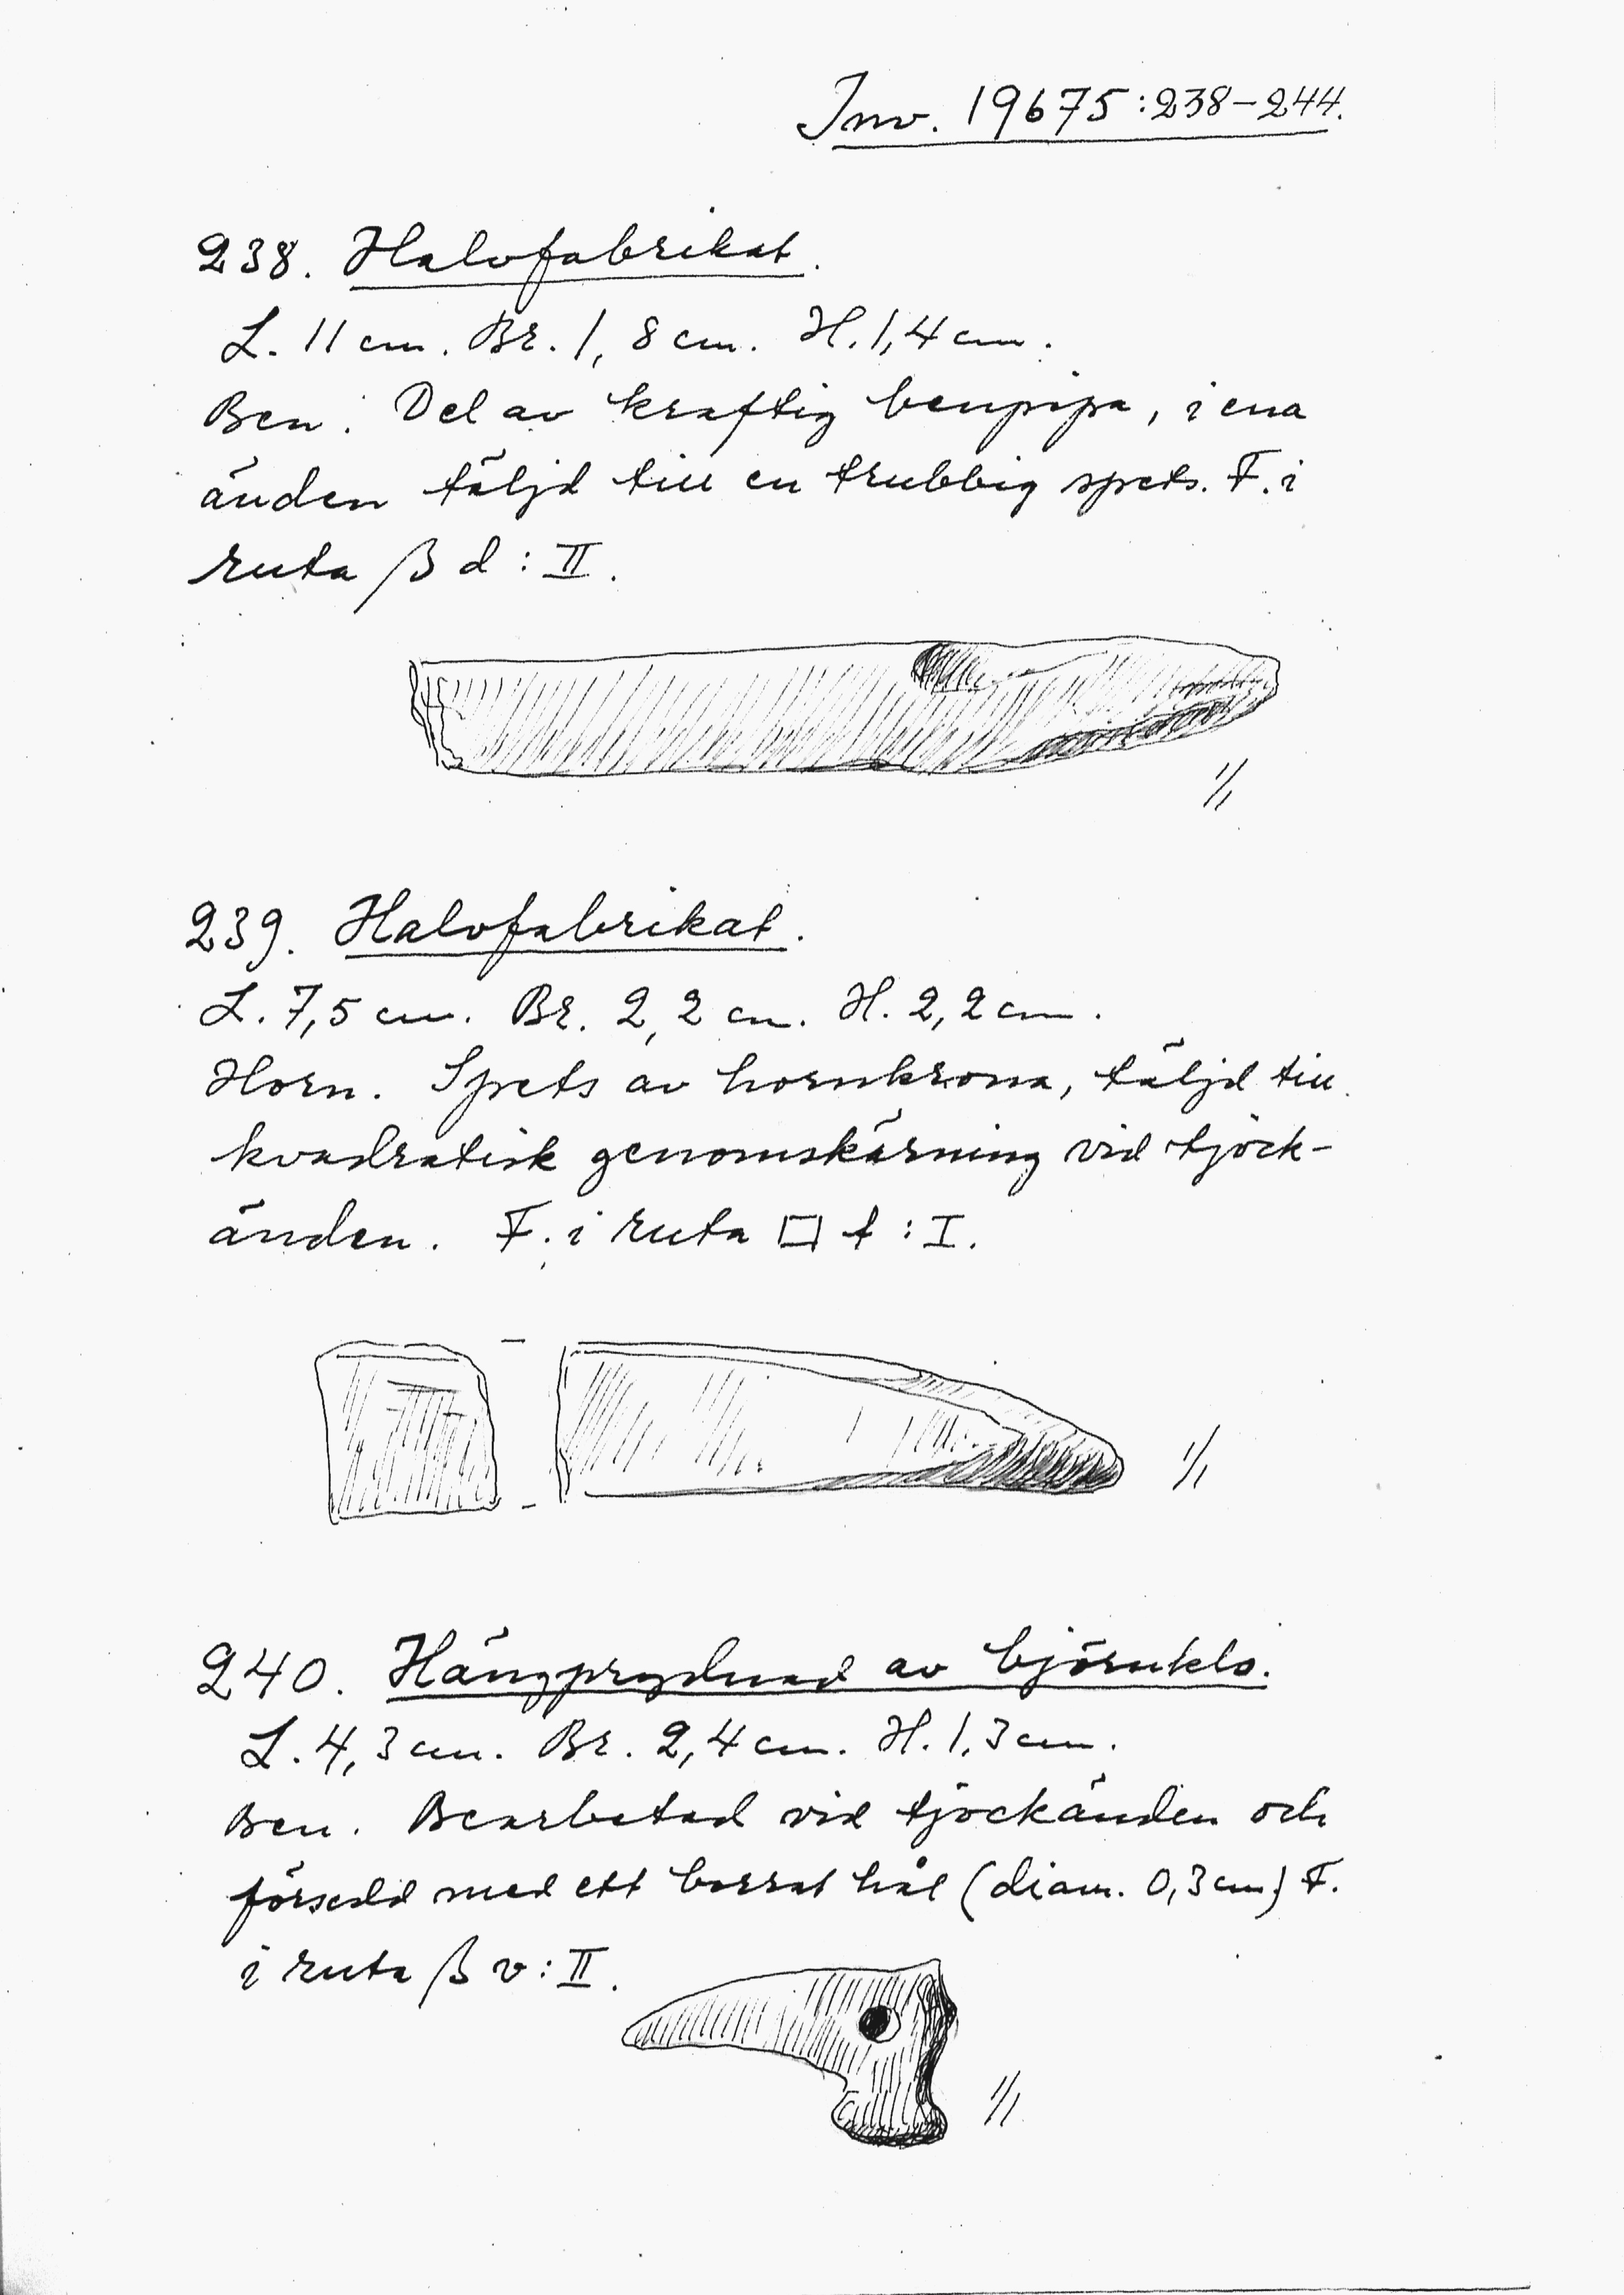 Inv. 19675:238-244.
238. Halvfabrikat.
L. 11 cm. Br. 1,8 cm. H. 1,4 cm.
Ben. Del av kraftig benpipa, i ena
änden täljd till en trubbig spets. F. i
ruta β d : II.
1/1
239. Halvfabrikat.
L. 7,5 cm. Br. 2,2 cm. H. 2,2 cm.
Horn. Spets av hornkrona, täljd till
kvadratisk genomskärning vid tjock-
änden. F. i ruta □ t : I.
1/1
240. Hängprydnad av björnklo.
L. 4,3 cm. Br. 2,4 cm. H. 1,3 cm.
Ben. Bearbetad vid tjockänden och
försedd med ett borrat hål (diam. 0,3 cm) F.
i ruta β v : II.
1/1